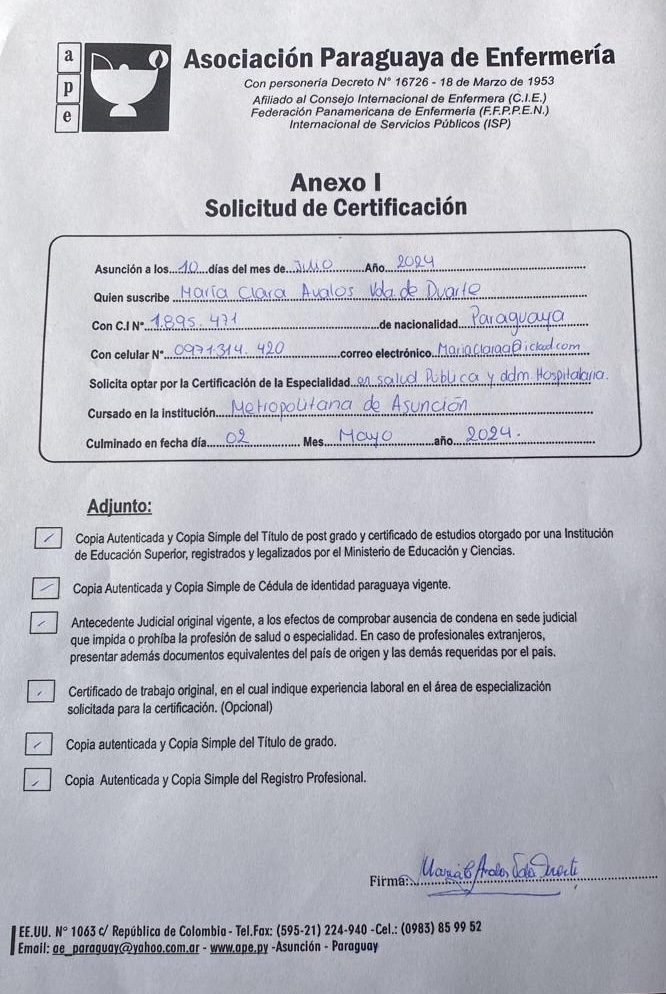 a
p
e
Asociación Paraguaya de Enfermería
Con personería Decreto N° 16726 - 18 de Marzo de 1953
Afiliado al Consejo Internacional de Enfermera (C.I.E.)
Federación Panamericana de Enfermería (F.F.P.P.E.N.)
Internacional de Servicios Públicos (ISP)
Anexo I
Solicitud de Certificación
Asunción a los...10...días del mes de...Julio........Año...2024
Quien suscribe María Clara Avalos Vda de Duarte
Con C.I N° 1.895.471 de nacionalidad Paraguaya
Con celular N° 0971.314.420 correo electrónico. Mariaclaraa@iclod.com
Solicita optar por la Certificación de la Especialidad en salud Publica y adm. Hospitalaria.
Cursado en la institución Metropolitana de Asunción
Culminado en fecha día 02 Mes Mayo año 2024.
Adjunto:
Copia Autenticada y Copia Simple del Título de post grado y certificado de estudios otorgado por una Institución
de Educación Superior, registrados y legalizados por el Ministerio de Educación y Ciencias.
Copia Autenticada y Copia Simple de Cédula de identidad paraguaya vigente.
Antecedente Judicial original vigente, a los efectos de comprobar ausencia de condena en sede judicial
que impida o prohíba la profesión de salud o especialidad. En caso de profesionales extranjeros,
presentar además documentos equivalentes del país de origen y las demás requeridas por el país.
Certificado de trabajo original, en el cual indique experiencia laboral en el área de especialización
solicitada para la certificación. (Opcional)
Copia autenticada y Copia Simple del Título de grado.
Copia Autenticada y Copia Simple del Registro Profesional.
Firma: Maria C Avalos Vda Duarte
EE.UU. N° 1063 c/ República de Colombia - Tel.Fax: (595-21) 224-940 -Cel.: (0983) 85 99 52
Email: ae_paraguay@yahoo.com.ar - www.ape.py -Asunción - Paraguay